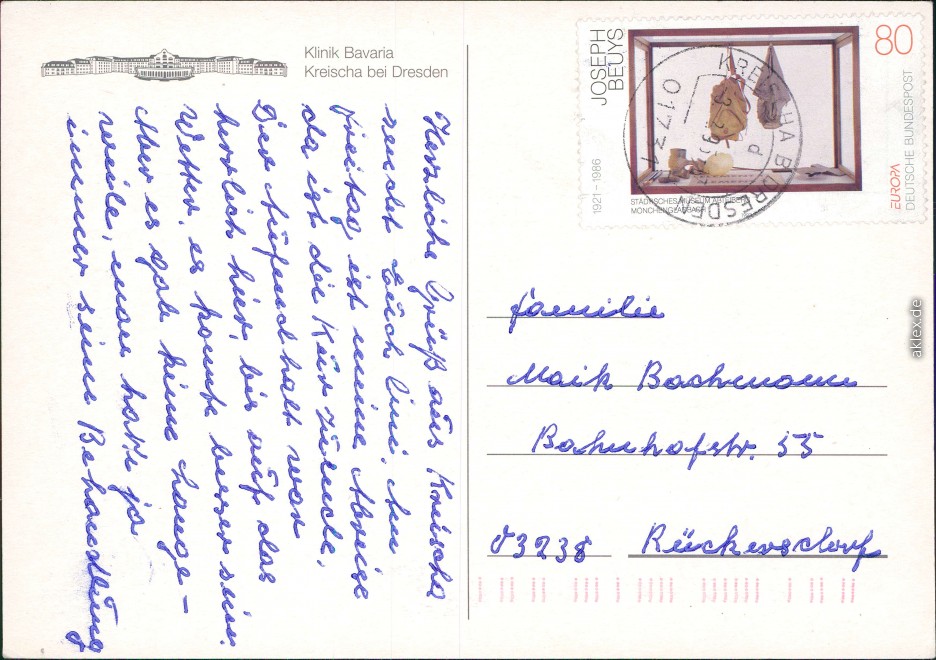 Klinik Bavaria
Kreischa bei Dresden
Herzliche Grüß aus Kreischa
sendet Euch Omi. Am
Freitag ist meine Abreise
da ist die Kur zuende.
Der Aufenthalt war
herrlich hier, bis auf das
Wetter, es konnte besser sein.
Aber es gab keine Lange-
weile, man hatte ja
immer seine Behandlung
JOSEPH
BEUYS
1921–1986
80
STÄDTISCHES MUSEUM
MÖNCHENGLADBACH
EUROPA
DEUTSCHE BUNDESPOST
KREISCHA B DRESDEN
01731
d
Familie
Maik Bachmann
Bahnhofstr. 55
03238 Rückersdorf
aklex.de